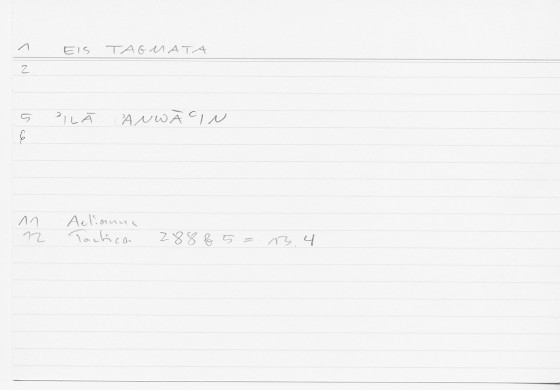 1 EIS TAGMATA
2
5 ʾILĀ ʾANWĀʿIN
6
11 Aelianus
12 Tactica 288 B 5 = 13.4